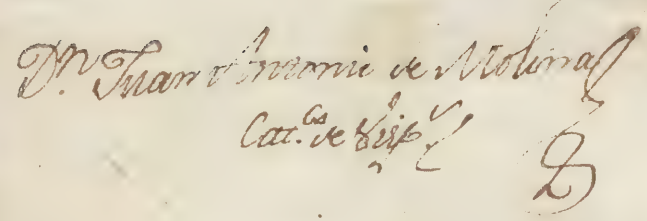 Dn. Juan Antonio de Molina
Cat.co de Visp.s